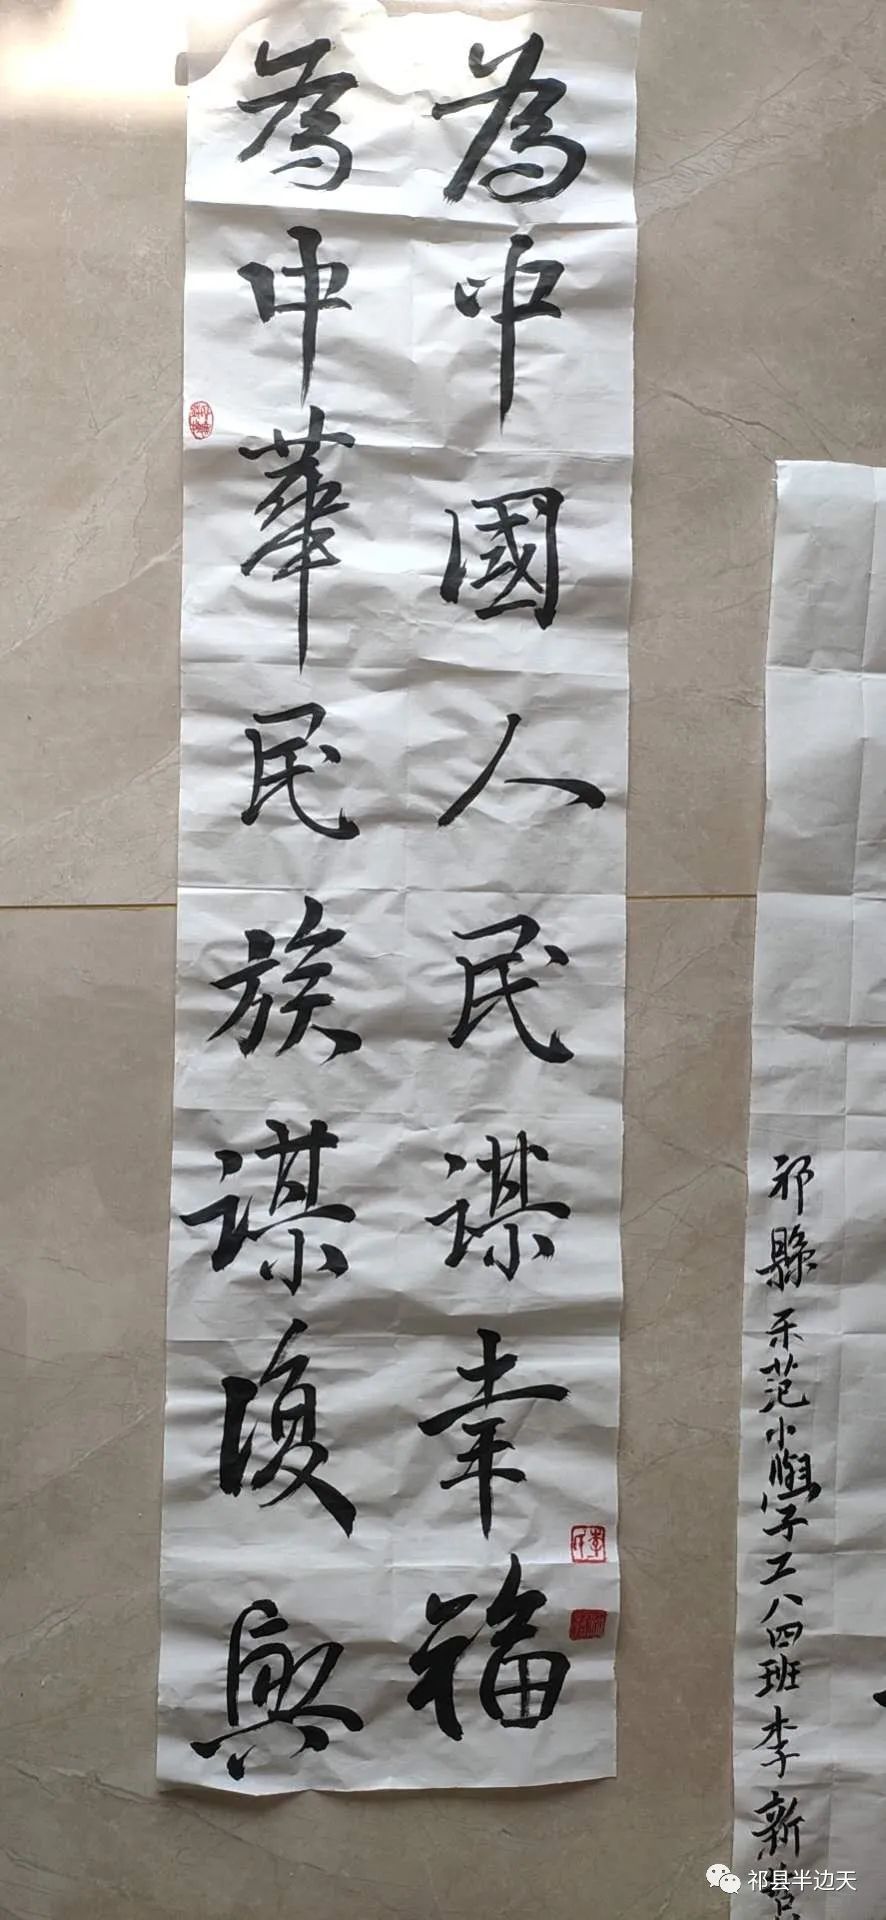 為中國人民謀幸福
為中華民族謀復興
祁縣示范小學子工八四班李新
祁县半边天